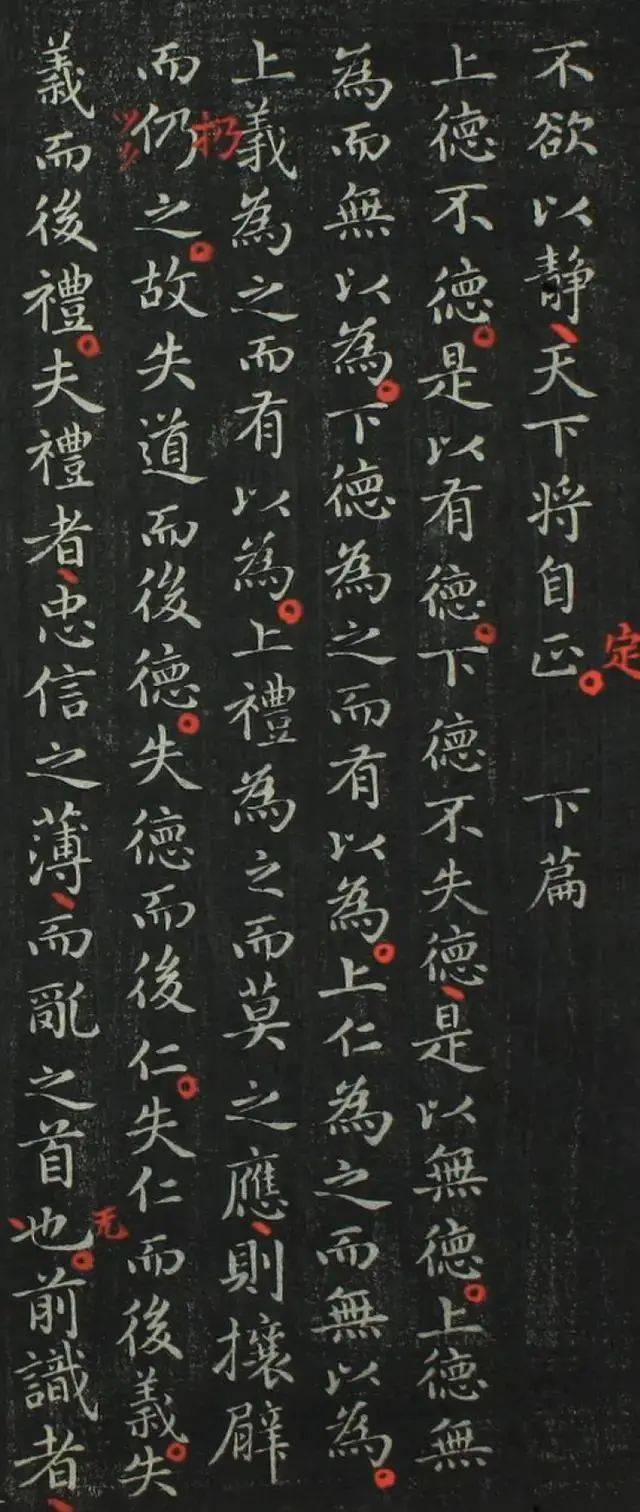 不欲以靜、天下将自正。定　下篇
上德不德。是以有德。下德不失德、是以無德。上德無
為而無以為。下德為之而有以為。上仁為之而無以為。
上義為之而有以為。上禮為之而莫之應、則攘臂
而仍扔之。故失道而後德。失德而後仁。失仁而後義。失
義而後禮。夫禮者、忠信之薄、而亂之首也。无前識者、